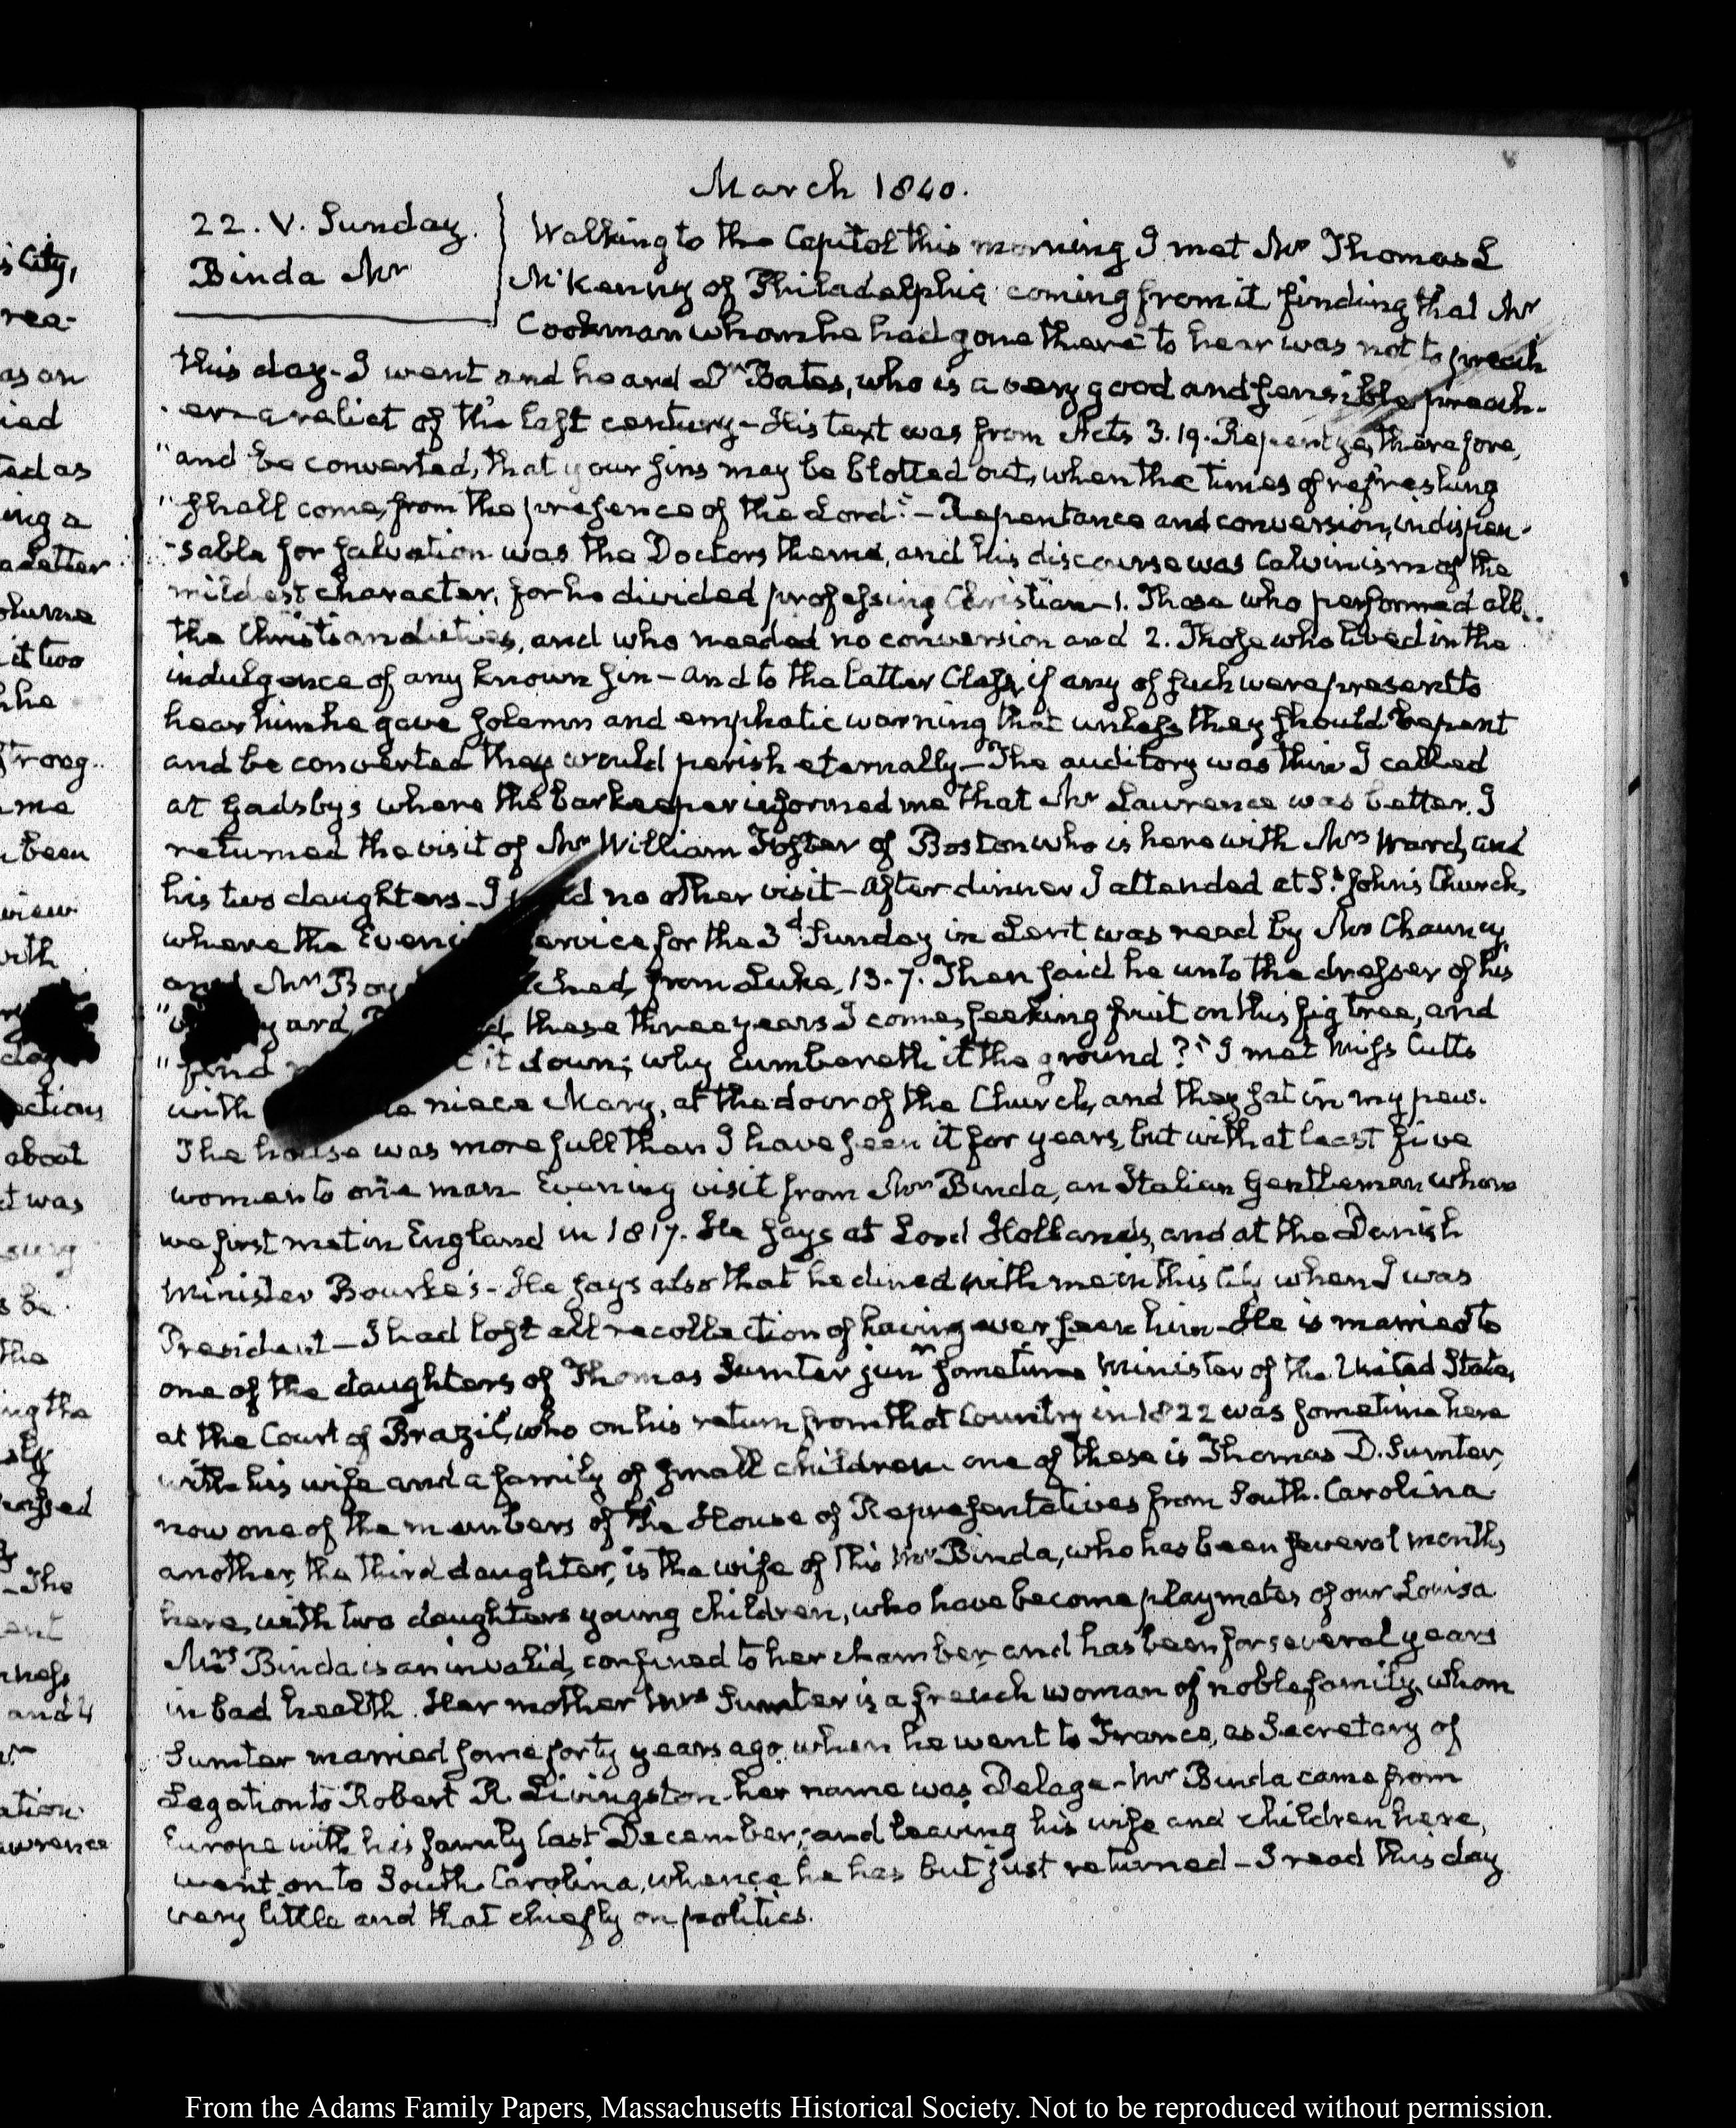 March 1840.
22. V. Sunday.
Binda Mr
Walking to the Capitol this morning I met Mr Thomas L
McKenny of Philadelphia coming from it finding that Mr
Cookman whom he had gone there to hear was not to preach
this day- I went and heard Dr Bates, who is a very good and sensible preach-
er- a relict of the last century- His text was from Acts 3.19. Repent ye, therefore,
"and be converted, that your sins may be blotted out, when the times of refreshing
"shall come, from the presence of the Lord."- Repentance and conversion, indispen-
-sable for salvation was the Doctors theme, and his discourse was Calvinism of the
mildest character, for he divided professing Christians- 1. Those who performed all
the Christian duties, and who needed no conversion and 2. Those who lived in the
indulgence of any known sin- and to the latter Class, if any of such were present to
hear him he gave solemn and emphatic warning that unless they should repent
and be converted they would perish eternally- The auditory was thin I called
at Gadsby's where the barkeeper informed me that Mr Lawrence was better. I
returned the visit of Mr William Foster of Boston who is here with Mrs Ward, and
his two daughters- I no other visit- After dinner I attended at St. John's Church,
where the Service for the 3d Sunday in Lent was read by Mr Chauncy,
and Mr from Luke, 13.7. Then said he unto the dresser of his
" these three years I come, seeking fruit on this fig tree, and
"find it down; why cumbereth it the ground?" I met Miss Cutts
with niece Mary, at the door of the Church, and they sat in my pew.
The house was more full than I have seen it for years, but with at least five
women to one man Evening visit from Mr Binda, an Italian Gentleman whom
we first met in England in 1817. He says at Lord Holland's, and at the Danish
Minister Bourke's- He says also that he dined with me in this City when I was
President- I had lost all recollection of having ever seen him- He is married to
one of the daughters of Thomas Sumter junr sometime Minister of the United States
at the Court of Brazil, who on his return from that Country in 1822 was sometime here
with his wife and a family of small children one of these is Thomas D. Sumter,
now one of the members of the House of Representatives from South-Carolina
another, the third daughter, is the wife of this Mr Binda, who has been several months
here, with two daughters young children, who have become playmates of our Louisa
Mrs Binda is an invalid, confined to her chamber and has been for several years
in bad health. Her mother Mrs Sumter is a french woman of noble family, whom
Sumter married some forty years ago when he went to France, as Secretary of
Legation to Robert R. Livingston- her name was Delage- Mr Binda came from
Europe with his family last December; and leaving his wife and children here,
went on to South Carolina, whence he has but just returned- I read this day
very little and that chiefly on politics.
From the Adams Family Papers, Massachusetts Historical Society. Not to be reproduced without permission.